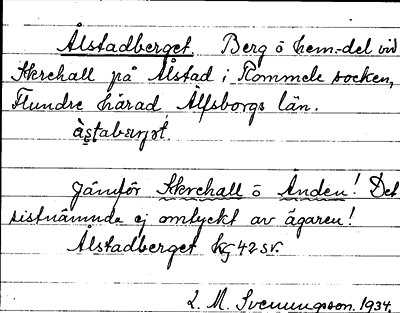 Ålstadberget, Berg ö hem-del vid
Skrehall på Ålstad i Rommele socken,
Flundre härad, Älfsborgs län.
àstabærjət.
Jämför Skrehall ö Ånden! Det
sistnämnda ej omtyckt av ägaren!
Ålstadberget kg 42 sv.
L. M. Svenungsson. 1934.